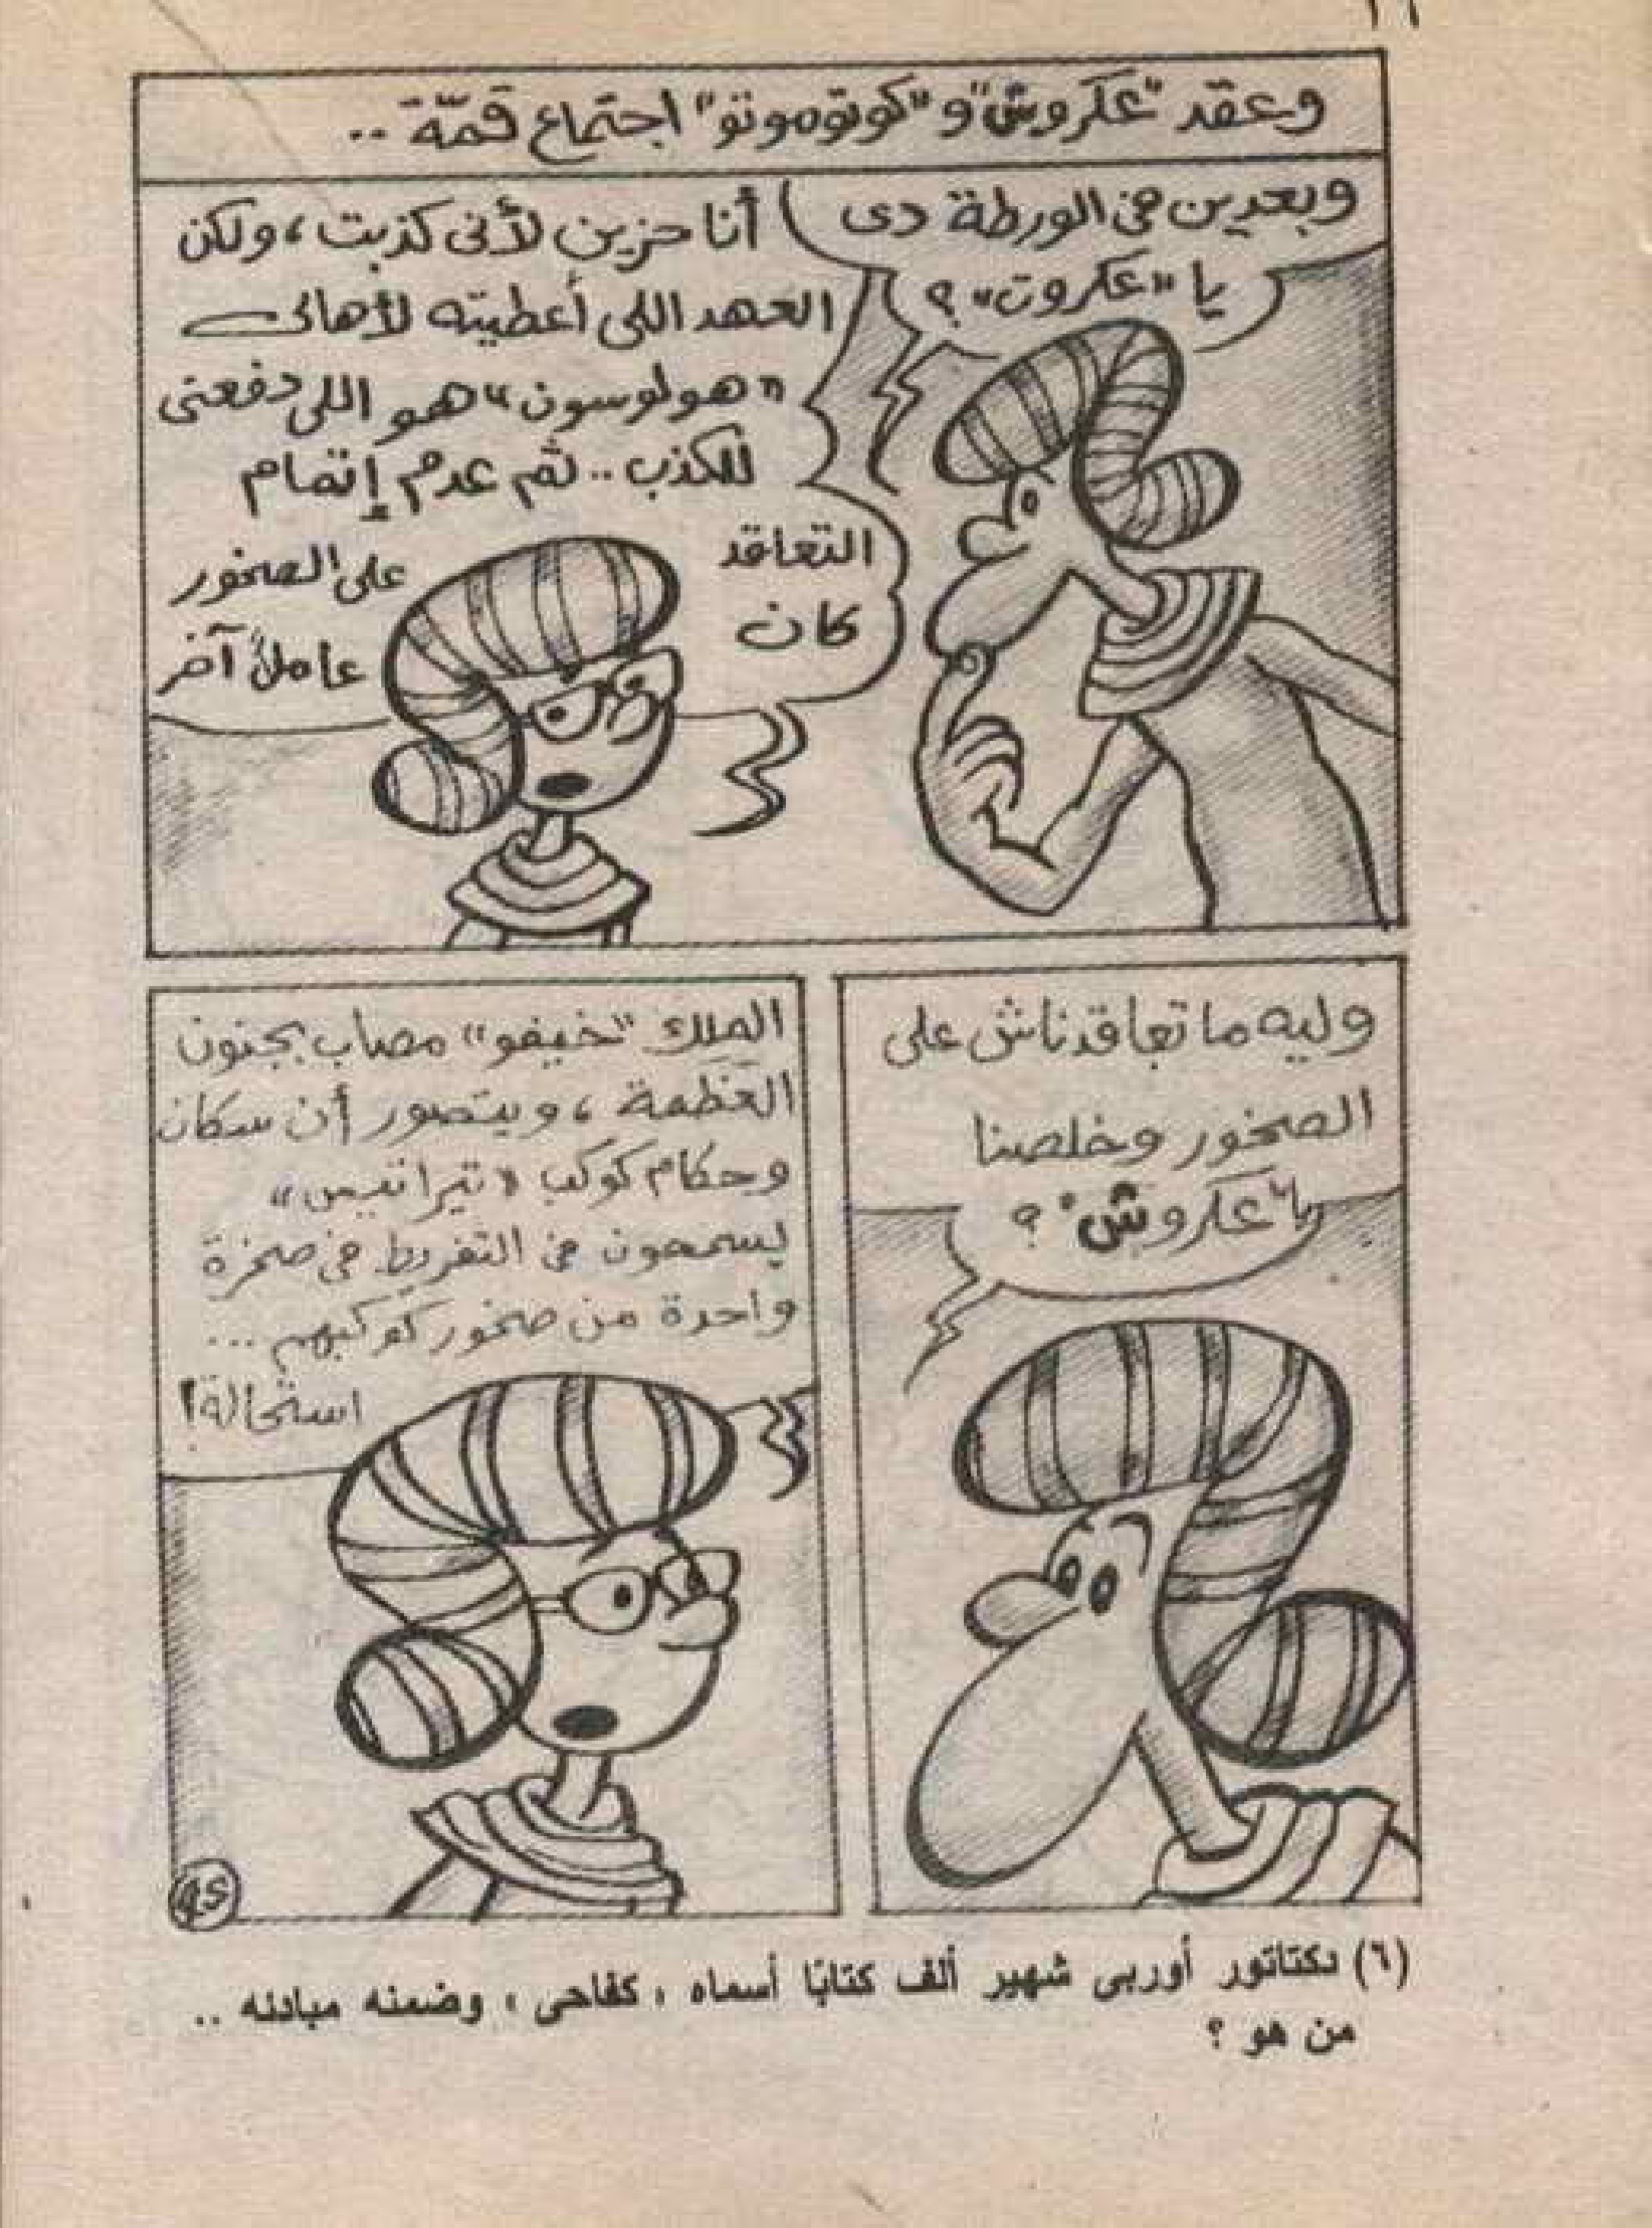 وعقد "عكروش" و "كوتوموتو" اجتماع قمّة ..
وبعدين في الورطة دى
يا "عكروت" ؟
أنا حزين لأنى كذبت ، ولكن
العهد اللى أعطيته لأهالى
"هولوسون" هو اللى دفعنى
للكذب .. ثم عدم إتمام
التعاقد
على الصخور
كان
عاملاً آخر
وليه ما تعاقدناش على
الصخور وخلصنا
يا "عكروش" ؟
الملك "خيفو" مصاب بجنون
العظمة ، وبيتصور أن سكان
وحكام كوكب "تيرانتيس"
ليسمحون في التفريط في صخرة
واحدة من صخور كوكبهم ...
استحالة !
(٦) دكتاتور أوربى شهير ألف كتابًا أسماه « كفاحى » وضمنه مبادئه ..
من هو ؟